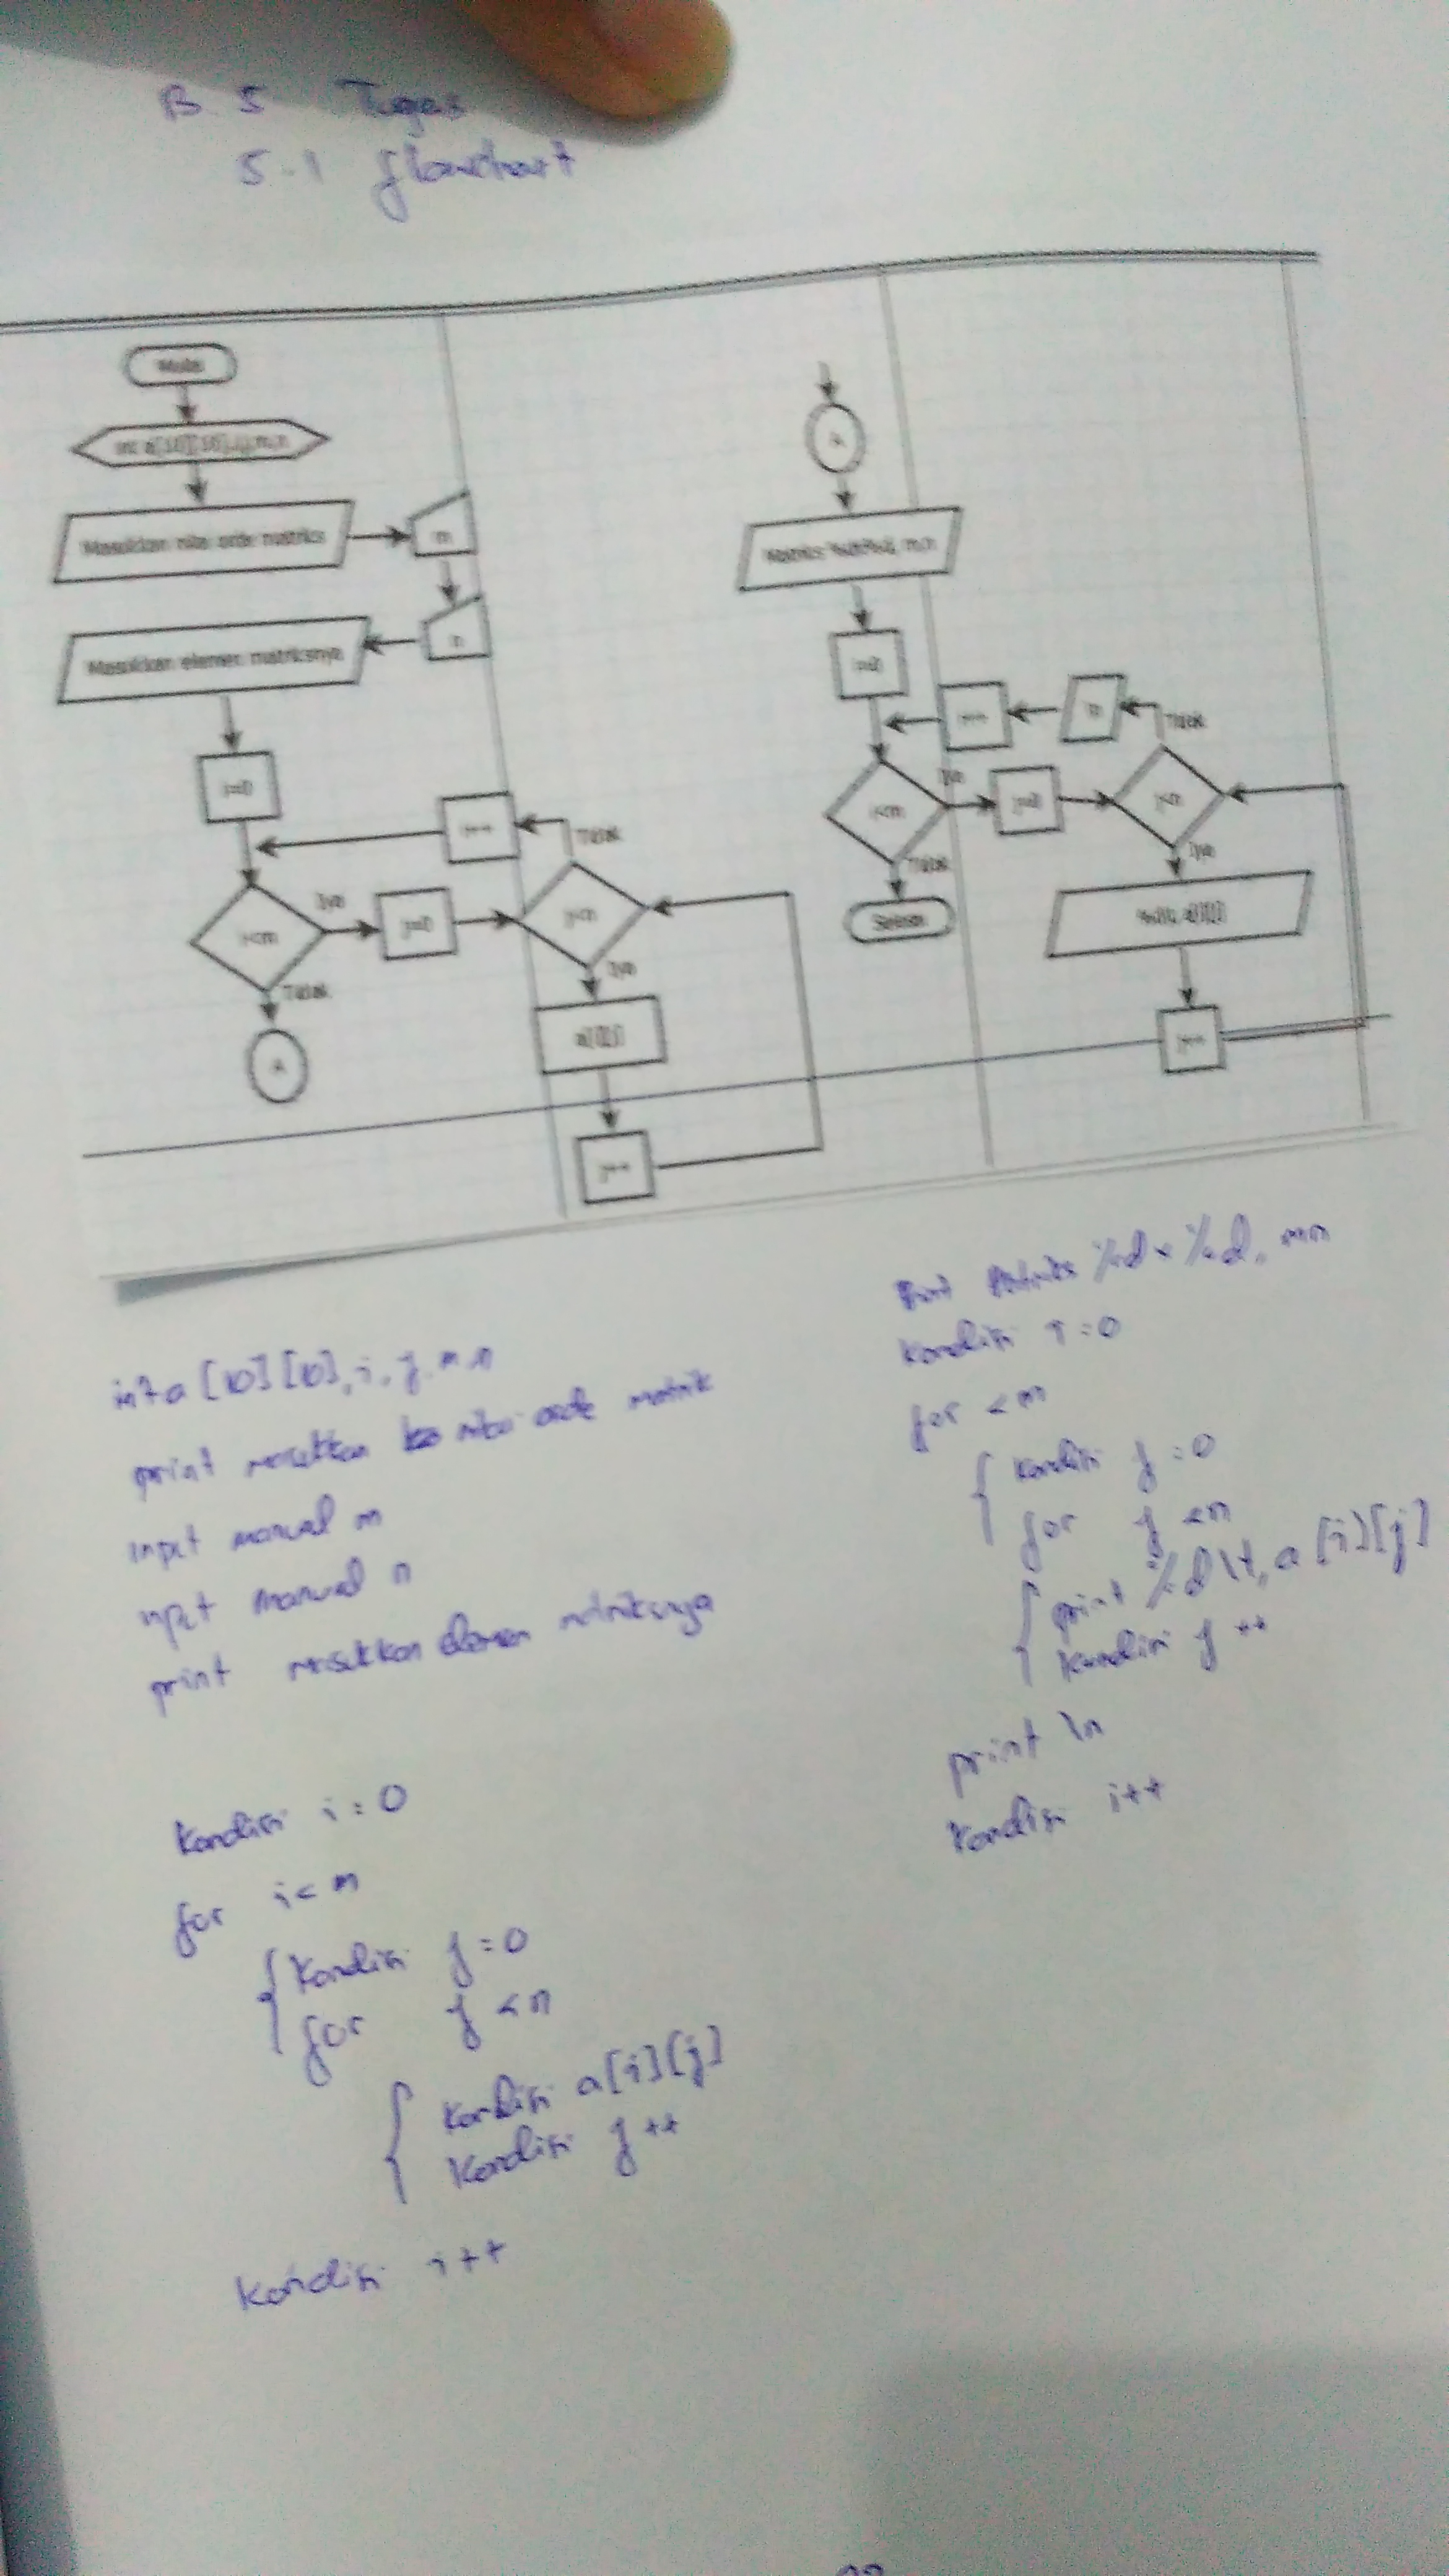 B 5 Tugas
5.1 flowchart
Mulai
int a[10][10],i,j,m,n
Masukkan nilai orde matriks
m
n
Masukkan elemen matriksnya
i=0
i<m
Iya
Tidak
j=0
j<n
Tidak
Iya
i++
a[i][j]
j++
Matriks %dx%d, m,n
i=0
i<m
Iya
Tidak
Selesai
j=0
j<n
Tidak
Iya
\n
i++
%d\t, a[i][j]
j++
int a [10] [10], i, j, m, n
print masukkan nilai orde matrik
input manual m
input manual n
print masukkan elemen matriksnya
Kondisi i = 0
for i < m
{ Kondisi j = 0
for j < n
{ Kondisi a[i][j]
Kondisi j ++
Kondisi i ++
Print Matriks %d x %d, mn
Kondisi i = 0
for < m
{ Kondisi j = 0
for j < n
{ print %d\t, a [i][j]
Kondisi j ++
print \n
Kondisi i++